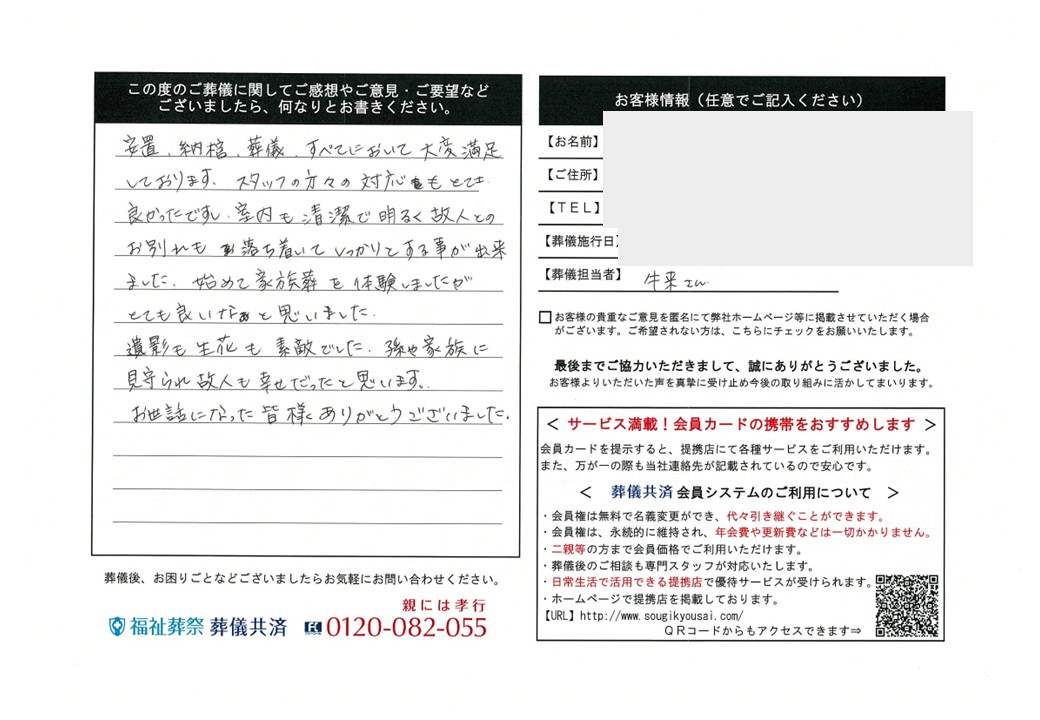 この度のご葬儀に関してご感想やご意見・ご要望など
ございましたら、何なりとお書きください。
安置、納棺、葬儀、すべてにおいて大変満足
しております。スタッフの方々の対応もとても
良かったですし、室内も清潔で明るく故人との
お別れも落ち着いてしっかりとする事が出来
ました。始めて家族葬を体験しましたが
とても良いなぁと思いました。
遺影も生花も素敵でした。孫や家族に
見守られ故人も幸せだったと思います。
お世話になった皆様ありがとうございました。
葬儀後、お困りごとなどございましたらお気軽にお問い合わせください。
親には孝行
福祉葬祭 葬儀共済 0120-082-055
お客様情報（任意でご記入ください）
【お名前】
【ご住所】
【ＴＥＬ】
【葬儀施行日】
【葬儀担当者】 牛来さん
お客様の貴重なご意見を匿名にて弊社ホームページ等に掲載させていただく場合
がございます。ご希望されない方は、こちらにチェックをお願いいたします。
最後までご協力いただきまして、誠にありがとうございました。
お客様よりいただいた声を真摯に受け止め今後の取り組みに活かしてまいります。
＜ サービス満載！会員カードの携帯をおすすめします ＞
会員カードを提示すると、提携店にて各種サービスをご利用いただけます。
また、万が一の際も当社連絡先が記載されているので安心です。
＜ 葬儀共済 会員システムのご利用について ＞
・会員権は無料で名義変更ができ、代々引き継ぐことができます。
・会員権は、永続的に維持され、年会費や更新費などは一切かかりません。
・二親等の方まで会員価格でご利用いただけます。
・葬儀後のご相談も専門スタッフが対応いたします。
・日常生活で活用できる提携店で優待サービスが受けられます。
・ホームページで提携店を掲載しております。
【URL】http://www.sougikyousai.com/
ＱＲコードからもアクセスできます⇒